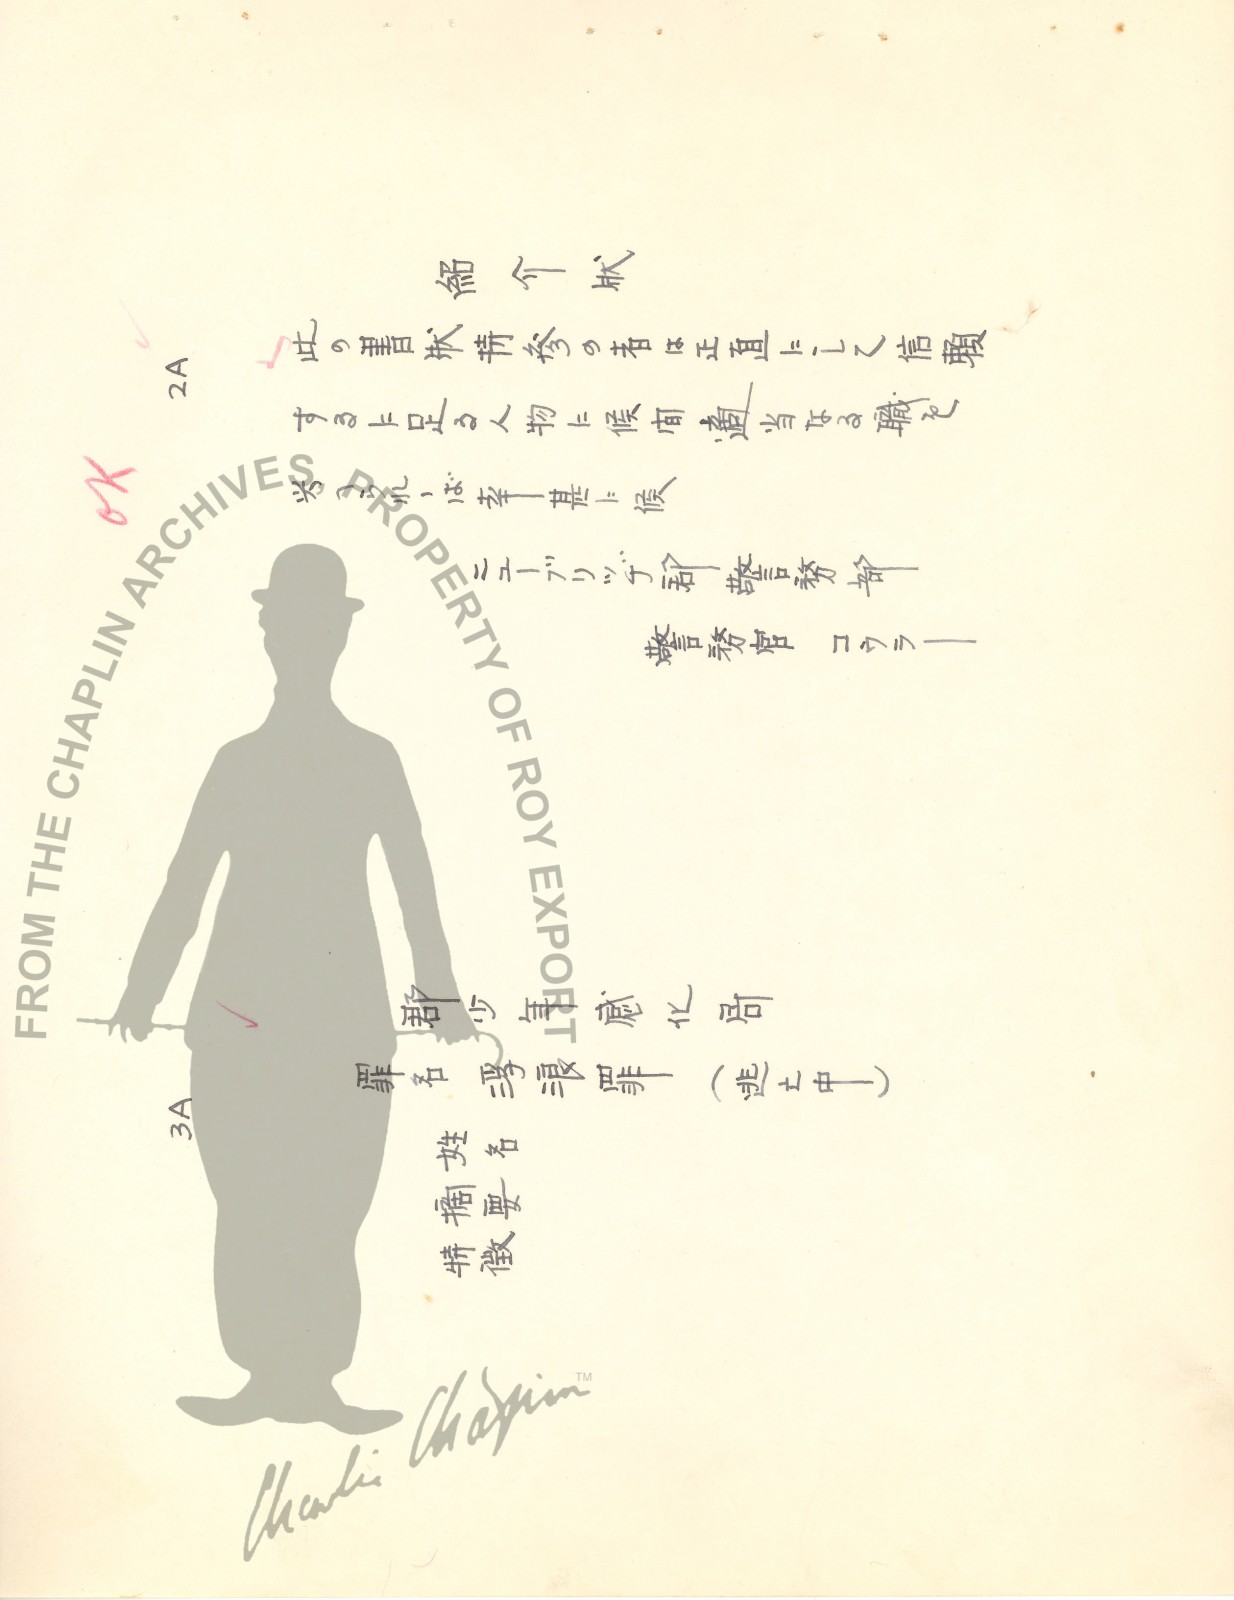 2A
OK
紹介状
此の書状持参の者は正直にして信頼
するに足る人物に候間適当なる職を
与へられゝば幸甚に候
ニューブリッヂ郡警務部
警務官 コウラー
3A
郡少年感化部
罪名 浮浪罪 (逃亡中)
姓名
摘要
特徴
FROM THE CHAPLIN ARCHIVES PROPERTY OF ROY EXPORT
Charlie Chaplin TM